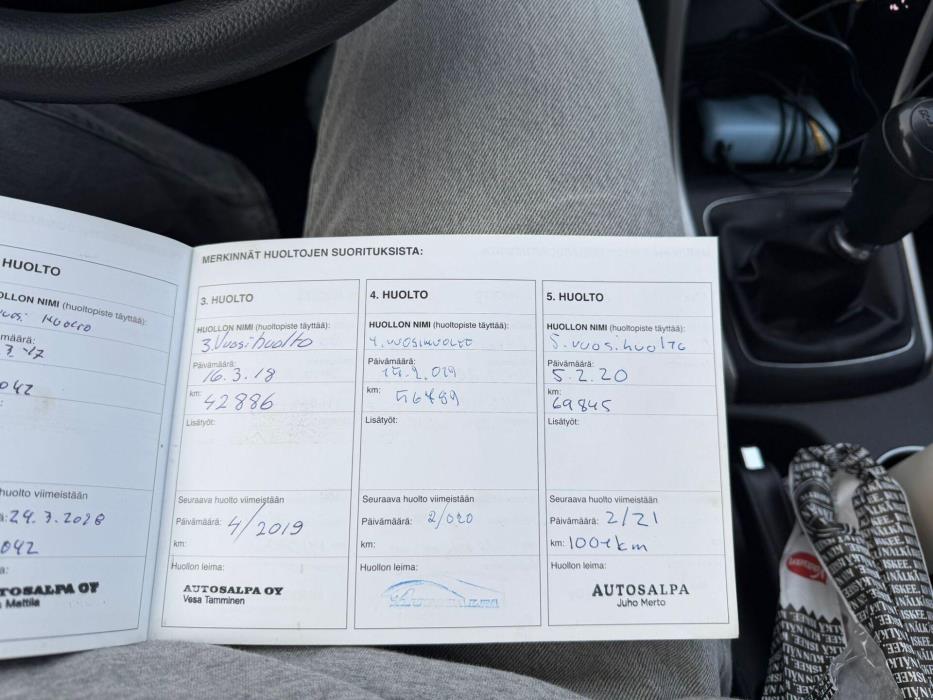 HUOLTO
OLLON NIMI (huoltopiste täyttää):
042
huolto viimeistään
29.3.2018
042
TOSALPA OY
Mattila
MERKINNÄT HUOLTOJEN SUORITUKSISTA:
3. HUOLTO
HUOLLON NIMI (huoltopiste täyttää):
3.Vuosihuolto
Päivämäärä:
16.3.18
km:
42886
Lisätyöt:
Seuraava huolto viimeistään
Päivämäärä: 4/2019
km:
Huollon leima:
AUTOSALPA OY
Vesa Tamminen
4. HUOLTO
HUOLLON NIMI (huoltopiste täyttää):
4.VUOSIHUOLTO
Päivämäärä:
km:
56489
Lisätyöt:
Seuraava huolto viimeistään
Päivämäärä: 2/020
km:
Huollon leima:
5. HUOLTO
HUOLLON NIMI (huoltopiste täyttää):
5.vuosihuolto
Päivämäärä:
5.2.20
km:
69845
Lisätyöt:
Seuraava huolto viimeistään
Päivämäärä: 2/21
km:
Huollon leima:
AUTOSALPA
Juho Merto